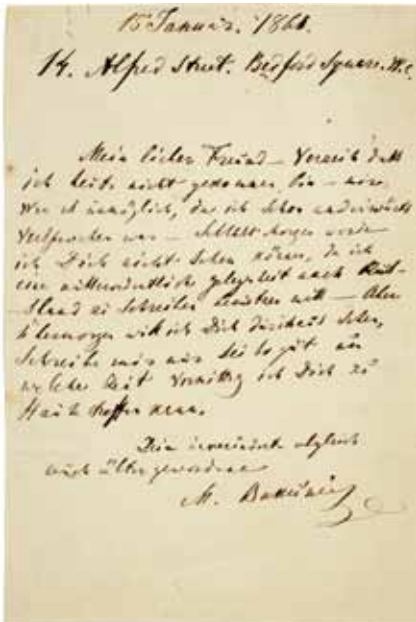 15 Januar. 1862.
14. Alfred Street. Bedford Square. W.C.
Mein lieber Freund – Verzeih dass
ich heute nicht gekommen bin – mir
war es unmöglich, da ich schon anderwärts
versprochen war – selbst morgen werde
ich Dich nicht sehen können, da ich
eine Gelegenheit nach Russ-
sland zu schreiben benutzen will – Aber
übermorgen will ich Dich durchaus sehen,
schreibe mir nur sei so gut um
welche Zeit Vormittag ich Dich zu
Hause treffen kann.
Dein obgleich
auch älter gewordener
M. Bakunin